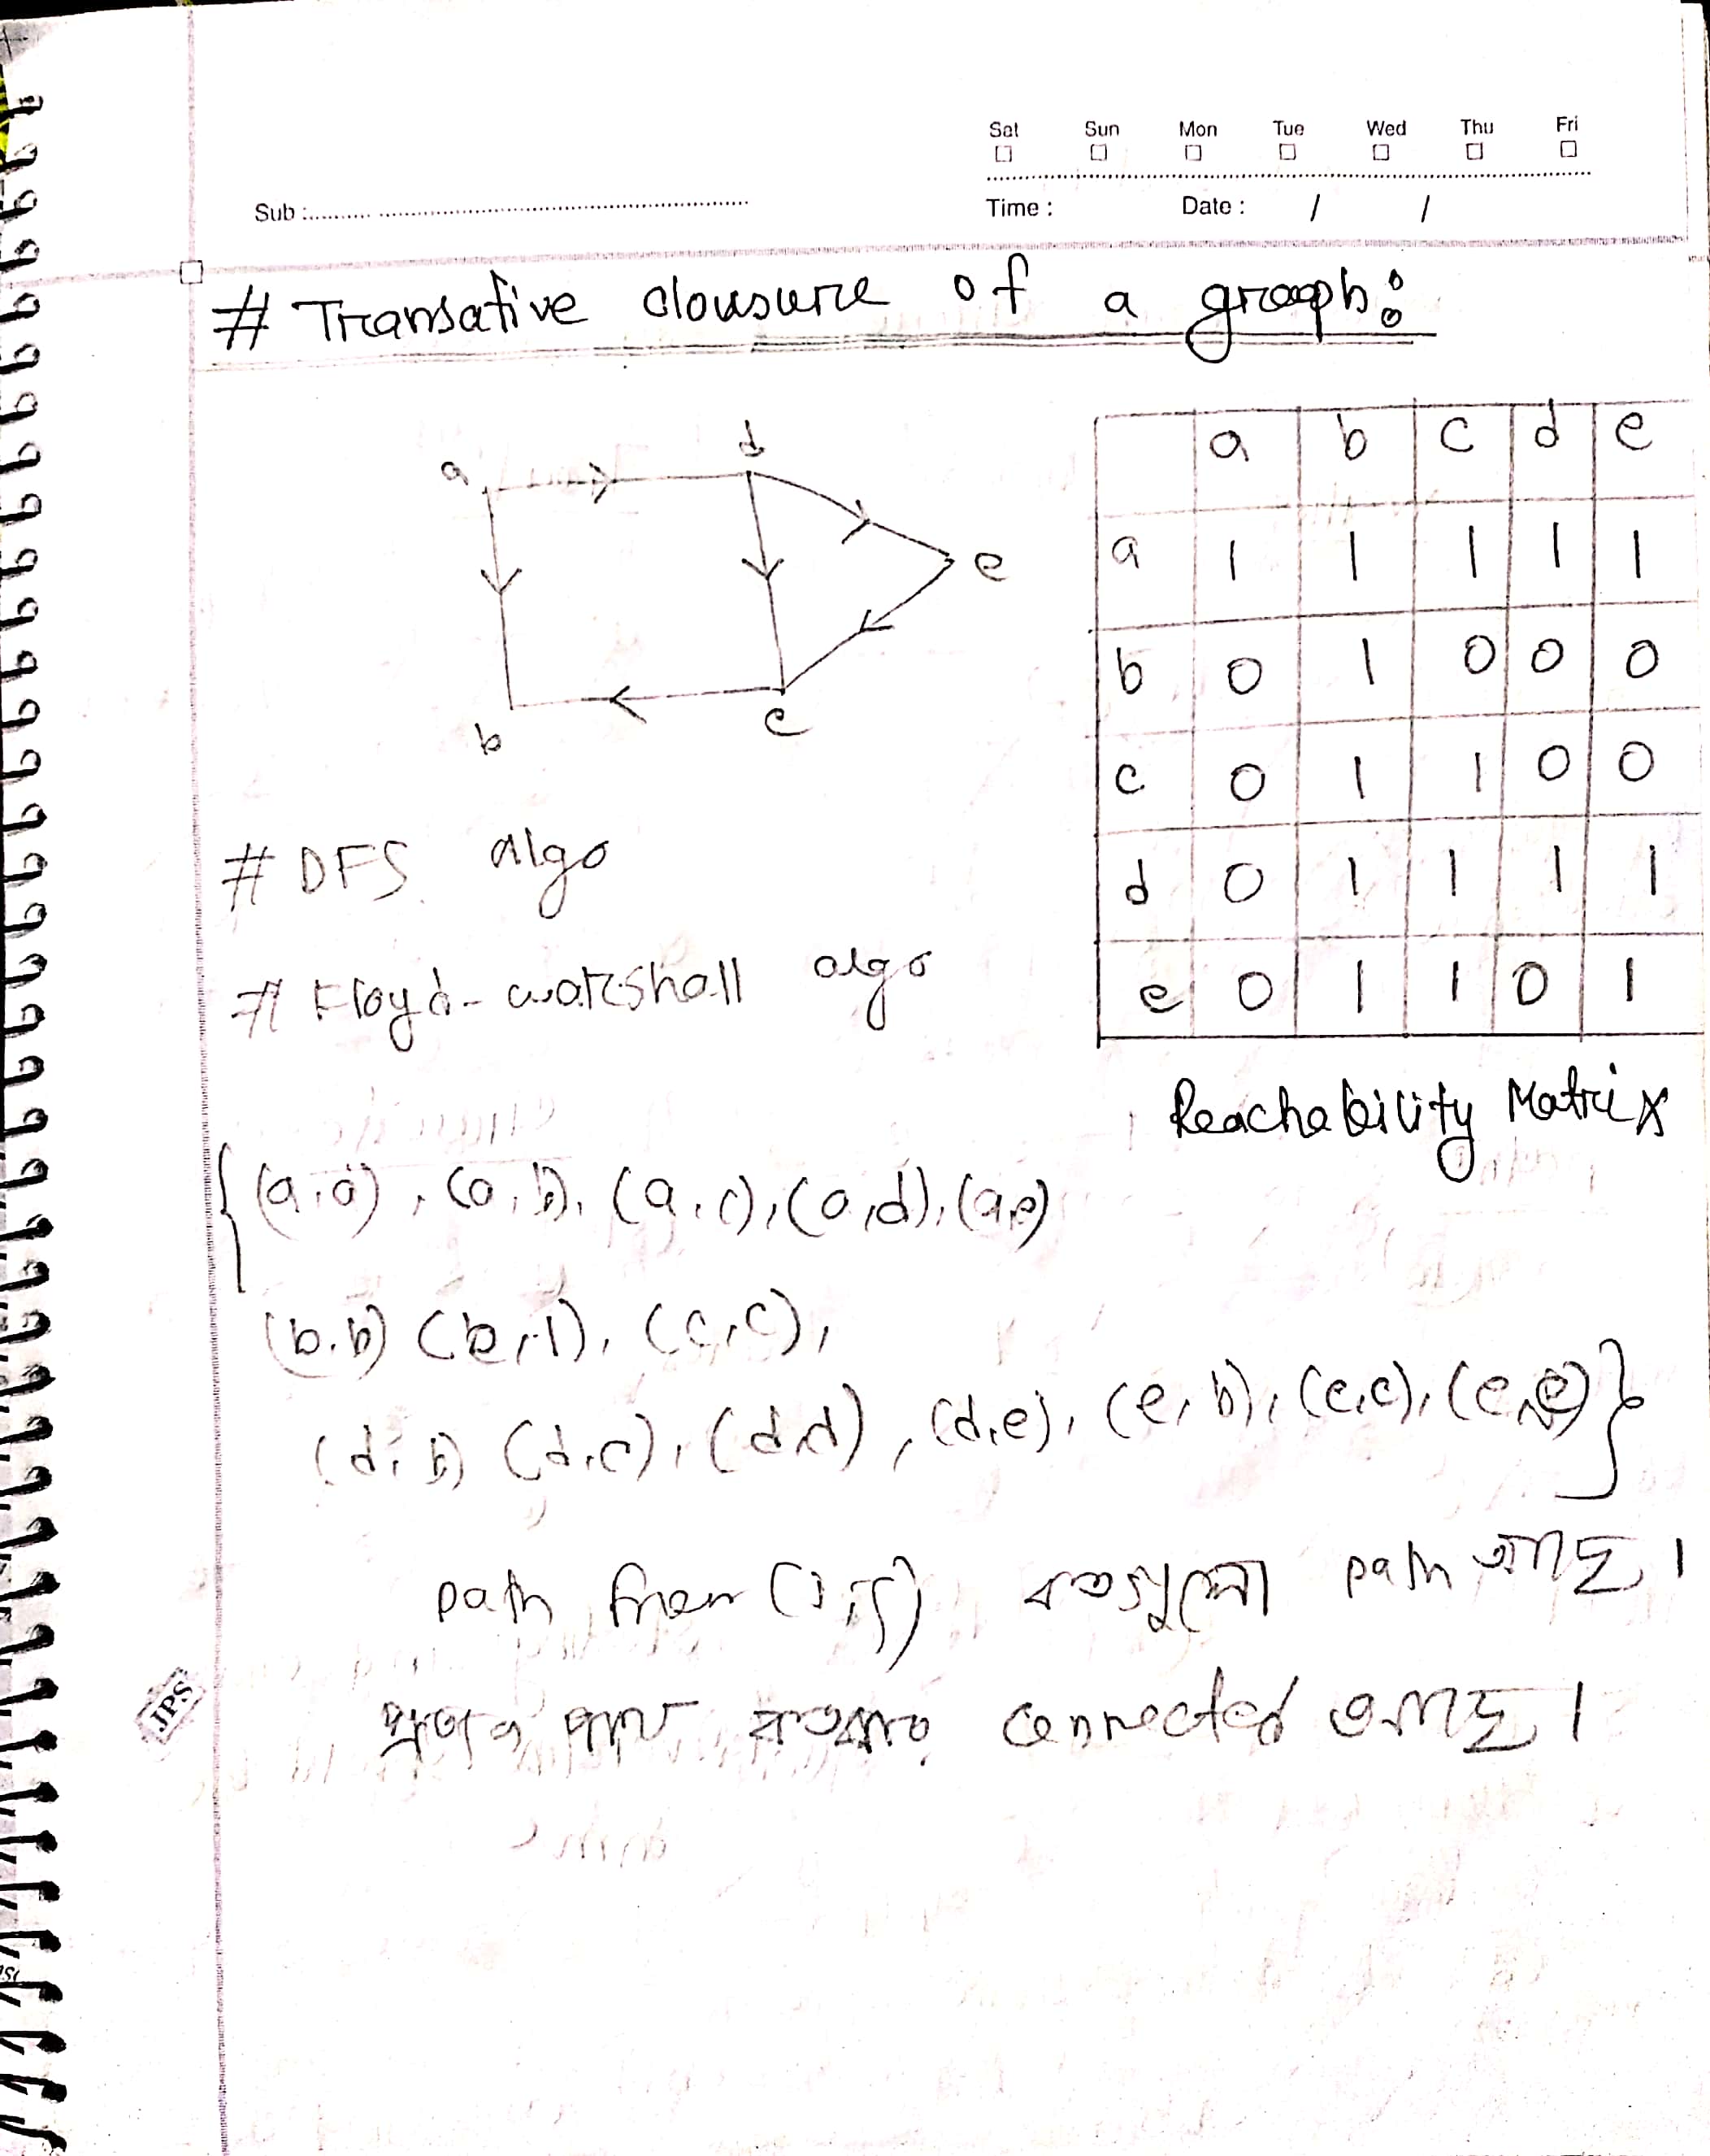 Sat Sun Mon Tue Wed Thu Fri
Sub : Time : Date : / /
# Transative clousure of a graph:
a d e b c
a b c d e
a 1 1 1 1 1
b 0 1 0 0 0
c 0 1 1 0 0
d 0 1 1 1 1
e 0 1 1 0 1
Reachability Matrix
# DFS algo
# Floyd-warshall algo
{(a,a), (a,b), (a,c), (a,d), (a,e)
(b,b) (b,1), (c,c),
(d,b) (d,c), (d,d), (d,e), (e,b), (e,c), (e,e)}
path from (i,j) কতগুলো path আছে।
connected আছে।
JPS